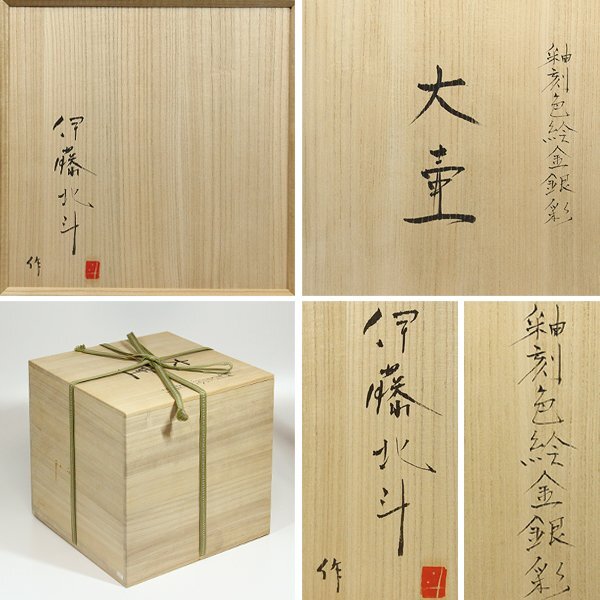 伊藤北斗
作
釉刻色絵金銀彩
大壷
伊藤北斗
作
釉刻色絵金銀彩